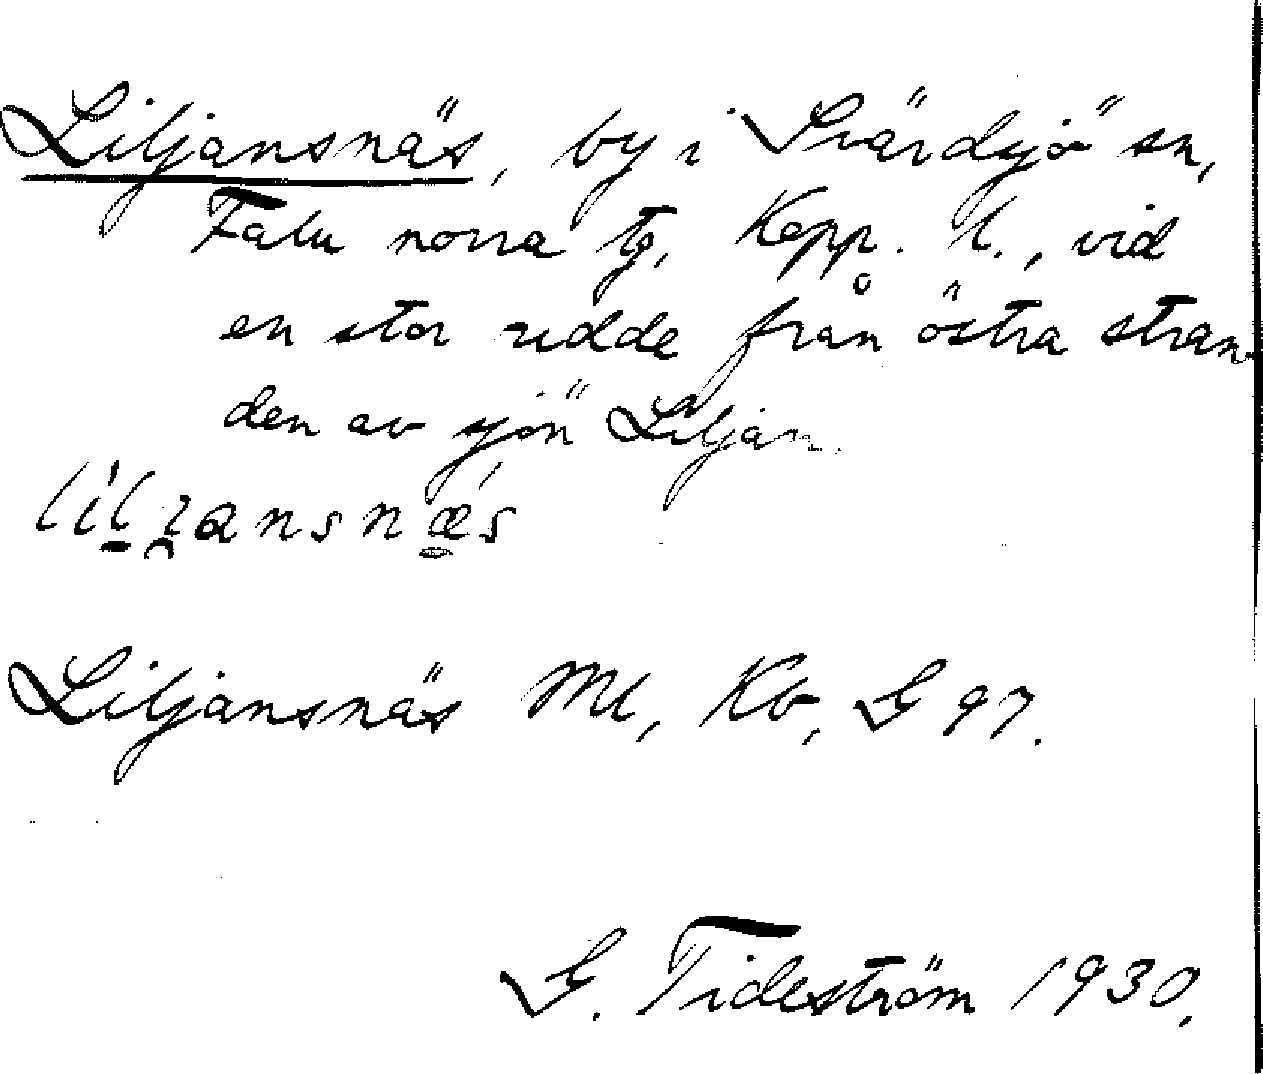 Liljansnäs, by i Svärdsjö sn,
Falu norra tg, Kopp. l., vid
en stor udde från östra stran-
den av sjön Liljan.
lílɪansnǽs
Liljansnäs Ml, Kb, G 97.
G. Tideström 1930.